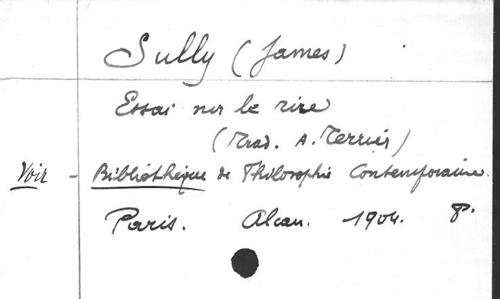 Sully (James)
Essai sur le rire
(Trad. A. Terrier)
Voir - Bibliothèque de Philosophie Contemporaine.
Paris. Alcan. 1904. 8°.